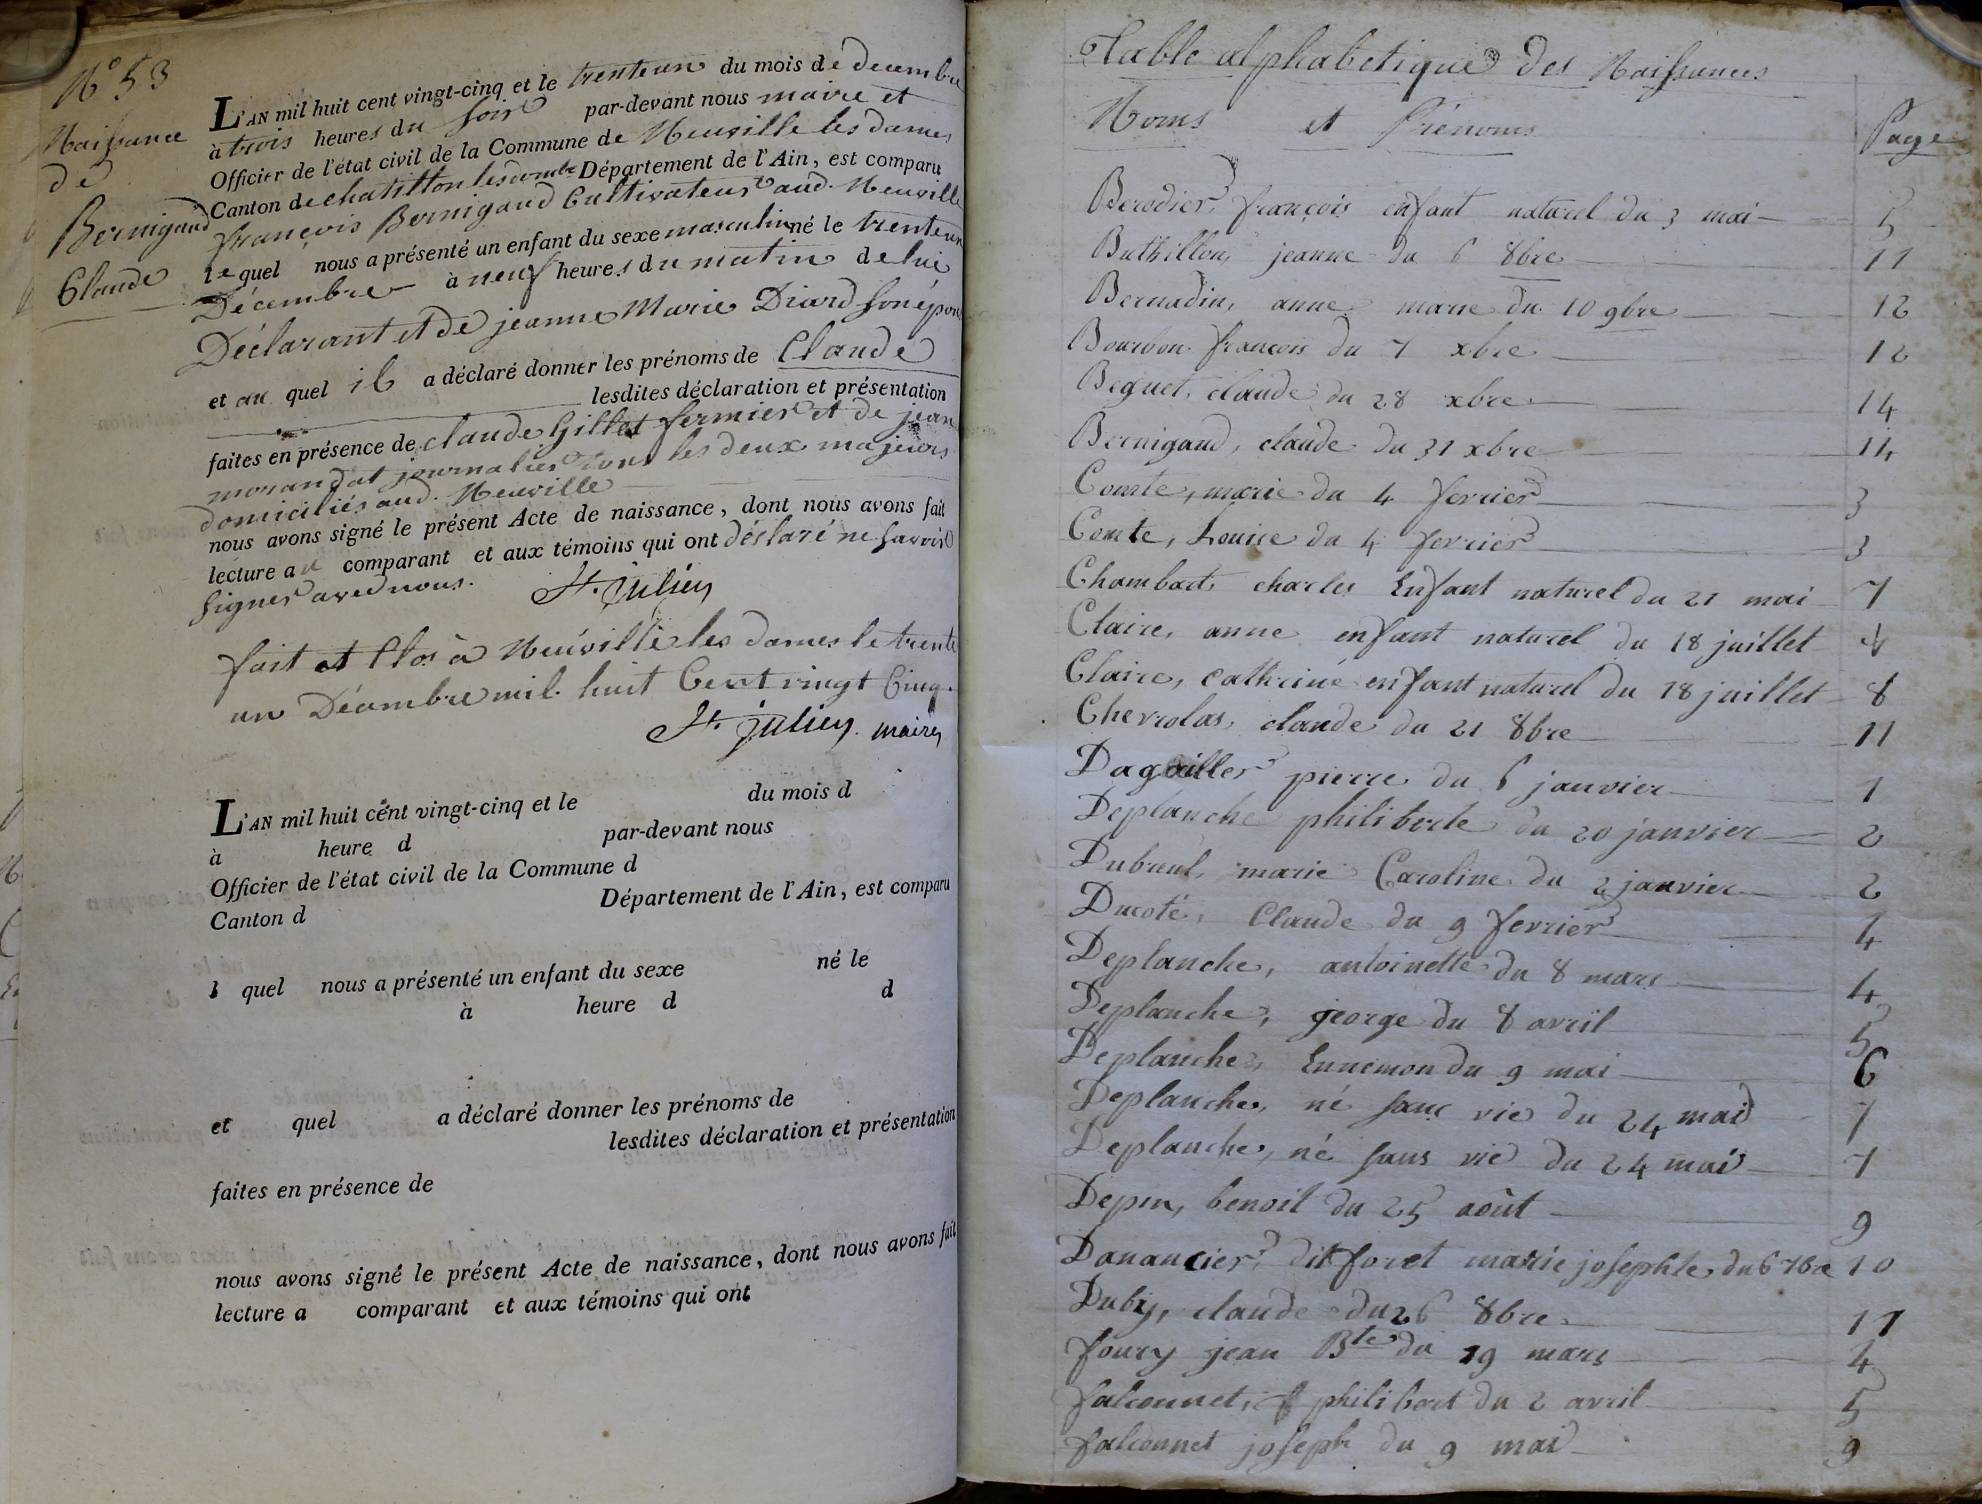 N° 53
Naissance
de
Bernigaud
Claude
L'AN mil huit cent vingt-cinq et le trente un du mois de decembre
à trois heures du soir par-devant nous maire et
Officier de l'état civil de la Commune de Neuville les dames
Canton de chatillon les dombe Département de l'Ain, est comparu
françois Bernigaud Cultivateur aud. Neuville
lequel nous a présenté un enfant du sexe masculin né le trente un
Décembre à neuf heures du matin de lui
Déclarant et de jeanne Marie Diard son épou
et au quel il a déclaré donner les prénoms de Claude
lesdites déclaration et présentation
faites en présence de claude Gillet fermier et de jean
morandat journalier tous les deux majeurs
domiciliés aud. Neuville
nous avons signé le présent Acte de naissance, dont nous avons fait
lecture au comparant et aux témoins qui ont déclaré ne savoir
signer avec nous. St. julien
fait et Clos à Neuville les dames le trente
un Décembre mil huit Cent vingt Cinq
St. julien maire
L'AN mil huit cent vingt-cinq et le du mois d
à heure d par-devant nous
Officier de l'état civil de la Commune d
Canton d Département de l'Ain, est comparu
l quel nous a présenté un enfant du sexe né le
à heure d d
et quel a déclaré donner les prénoms de
lesdites déclaration et présentation
faites en présence de
nous avons signé le présent Acte de naissance, dont nous avons fait
lecture a comparant et aux témoins qui ont
Table alphabetique des Naissances
Noms et Prénoms Page
Berodier, françois enfant naturel du 3 mai 5
Buthillon, jeanne du 6 8bre 11
Bernadin, anne marie du 10 9bre 12
Bourbon françois du 7 xbre 12
Beguet, claude du 28 xbre 14
Bernigaud, claude du 31 xbre 14
Comte, marie du 4 fevrier 3
Comte, Louise du 4 fevrier 3
Chambard, charles Enfant naturel du 21 mai 7
Claire, anne enfant naturel du 18 juillet 8
Claire, catherine enfant naturel du 18 juillet 8
Chevrolas, claude du 21 8bre 11
Dagailler pierre du 6 janvier 1
Deplanche philiberte du 20 janvier 2
Dubreul, marie Caroline du 2 janvier 2
Ducoté, Claude du 9 fevrier 4
Deplanche, antoinette du 8 mars 4
Deplanche, george du 8 avril 5
Deplanche, Ennemon du 9 mai 6
Deplanche, né sans vie du 24 mai 7
Deplanche, né sans vie du 24 mai 7
Depin, benoit du 25 août 9
Danancier, dit foret marie josephte du 6 7bre 10
Duby, claude du 26 8bre 11
foury jean Bte du 19 mars 4
falconnet, philibert du 2 avril 5
falconnet joseph du 9 mai 9